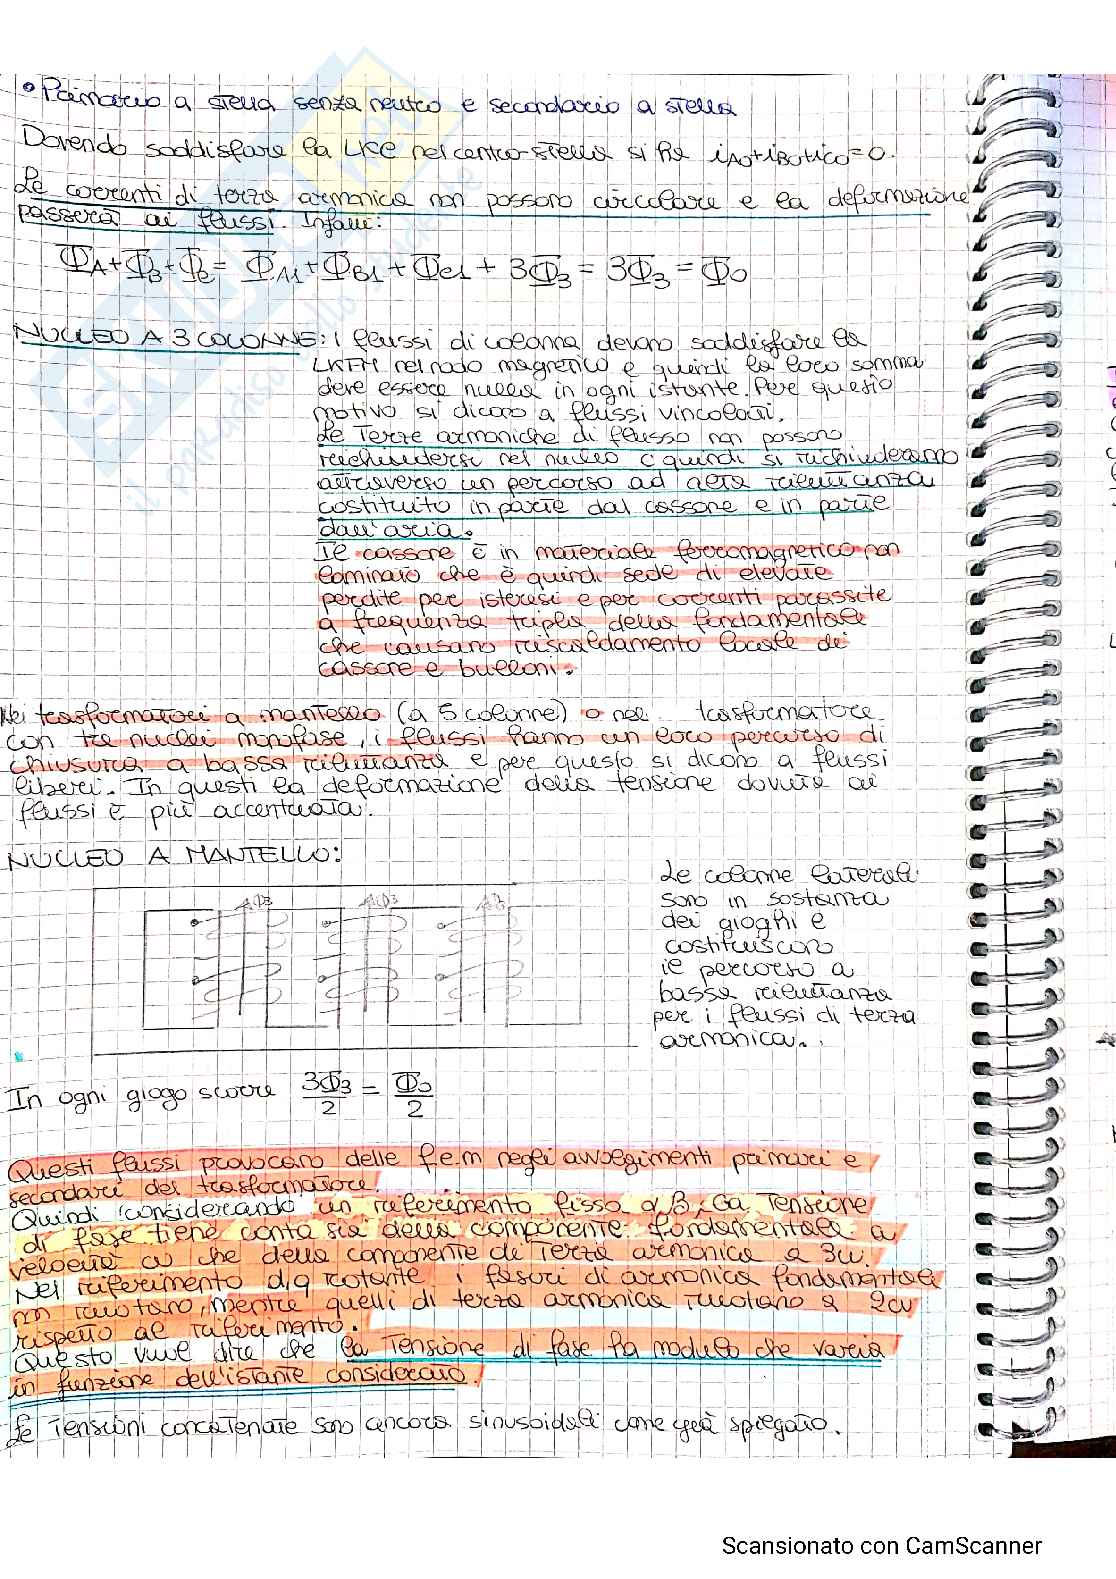 • Primario a stella senza neutro e secondario a stella
Dovendo soddisfare la LKC nel centro-stella si ha iA0+iB0+iC0=0.
Le correnti di terza armonica non possono circolare e la deformazione
passerà ai flussi. Infatti:
Φ̅A+Φ̅B+Φ̅C= Φ̅A1+Φ̅B1+Φ̅C1+3Φ̅3=3Φ̅3=Φ̅0
NUCLEO A 3 COLONNE: i flussi di colonna devono soddisfare la
LKFM nel nodo magnetico e quindi la loro somma
deve essere nulla in ogni istante. Per questo
motivo si dicono a flussi vincolati.
Le Terze armoniche di flusso non possono
richiudersi nel nucleo e quindi si richiuderanno
attraverso un percorso ad alta riluttanza
costituito in parte dal cassone e in parte
dall'aria.
Il cassone è in materiale ferromagnetico non
laminato che è quindi sede di elevate
perdite per isteresi e per correnti parassite
a frequenza tripla della fondamentale
che causano riscaldamento locale di
cassone e bulloni.
Nei trasformatori a mantello (a 5 colonne) o nel trasformatore
con tre nuclei monofase, i flussi hanno un loro percorso di
chiusura a bassa riluttanza e per questo si dicono a flussi
liberi. In questi la deformazione della tensione dovuta ai
flussi è più accentuata.
NUCLEO A MANTELLO:
Le colonne laterali
sono in sostanza
dei gioghi e
costituiscono
il percorso a
bassa riluttanza
per i flussi di terza
armonica.
In ogni giogo scorre 3Φ̅3/2 = Φ̅0/2
Questi flussi provocano delle f.e.m negli avvolgimenti primari e
secondari del trasformatore.
Quindi considerando un riferimento fisso α,β, la Tensione
di fase tiene conto sia della componente fondamentale a
velocità ω che della componente di Terza armonica a 3ω.
Nel riferimento d,q rotante i fasori di armonica fondamentale
non ruotano, mentre quelli di terza armonica ruotano a 2ω
rispetto al riferimento.
Questo vuol dire che la Tensione di fase ha modulo che varia
in funzione dell'istante considerato.
Le Tensioni concatenate sono ancora sinusoidali come già spiegato.
Scansionato con CamScanner